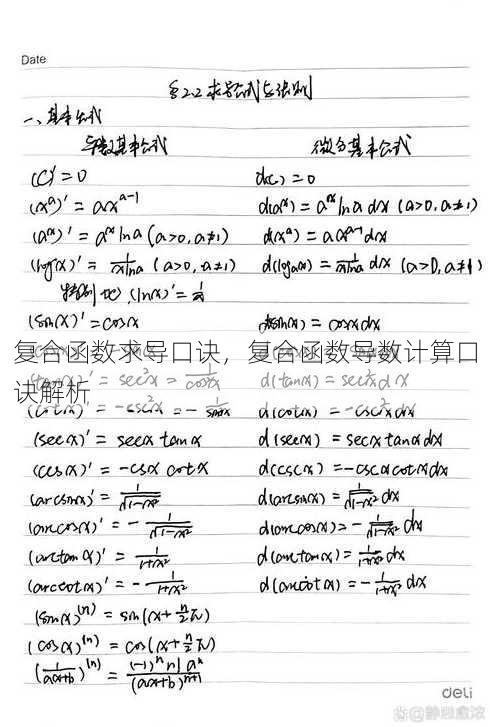 Date
§2.2 求导公式与法则
一、基本公式
导数基本公式 微分基本公式
(C)'=0 d(c)=0
(x^a)'=ax^{a-1} d(a^x)=a^x ln a dx (a>0,a≠1)
(a^x)'=a^x ln a (a>0,a≠1) d(x^a)=ax^{a-1}dx
(log_a x)'=1/(x ln a) (a>0,a≠1) d(log_a x)=1/(x ln a) dx (a>0,a≠1)
特别地,(ln x)'=1/x
(sin x)'=cos x d(sin x)=cos x dx
复合函数求导口诀，复合函数导数计算口
(tan x)'=sec²x=1/cos²x d(tan x)=sec²x dx
诀解析
(cot x)'=-csc²x=-1/sin²x d(cot x)=-csc²x dx
(sec x)'=sec x tan x d(sec x)=sec x tan x dx
(csc x)'=-csc x cot x d(csc x)=-csc x cot x dx
(arcsin x)'=1/√(1-x²) d(arcsin x)=1/√(1-x²) dx
(arccos x)'=-1/√(1-x²) d(arccos x)=-1/√(1-x²) dx
(arctan x)'=1/(1+x²) d(arctan x)=1/(1+x²) dx
(arccot x)'=-1/(1+x²) d(arccot x)=-1/(1+x²) dx
(sin x)^{(n)}=sin(x+n/2 π)
(cos x)^{(n)}=cos(x+n/2 π)
(1/(ax+b))^{(n)}=(-1)^n n! a^n/(ax+b)^{n+1}
deli